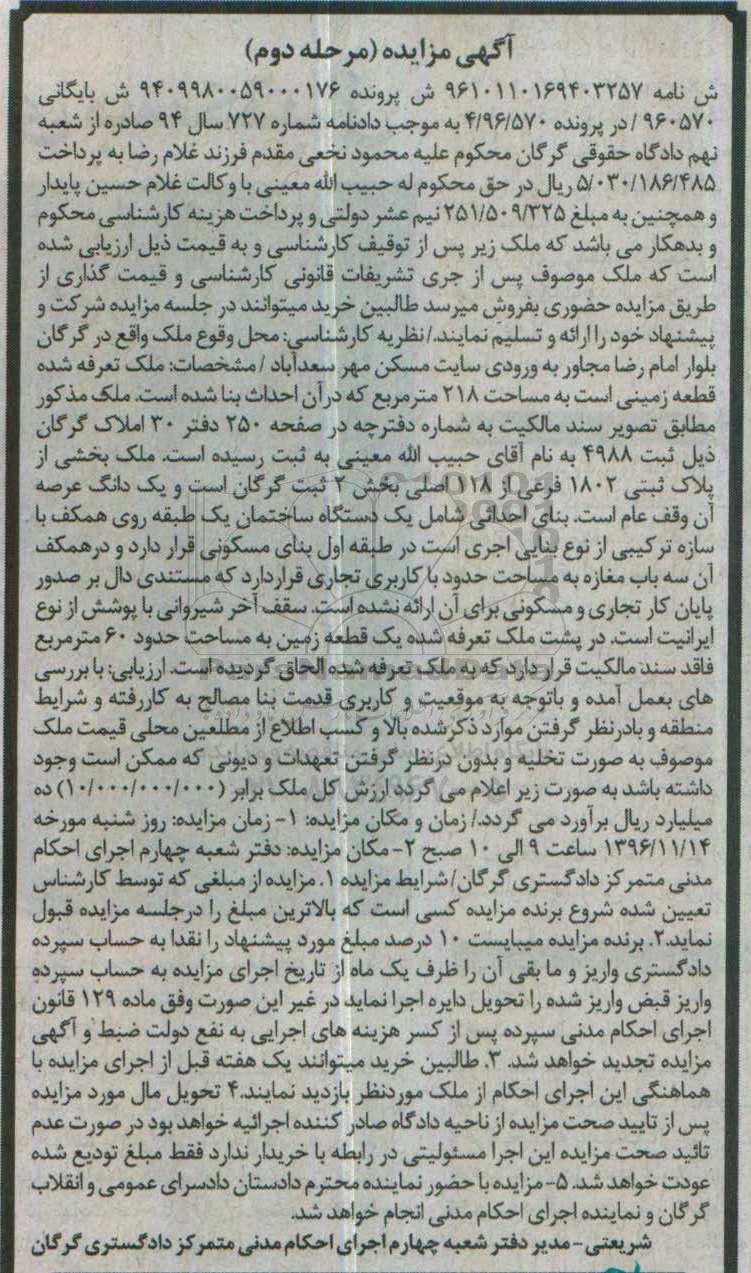 آگهی مزایده (مرحله دوم)
ش نامه ۹۶۱۰۱۱۰۱۶۹۴۰۳۲۵۷ ش پرونده ۹۴۰۹۹۸۰۰۵۹۰۰۰۱۷۶ ش بایگانی
۹۶۰۵۷۰ / در پرونده ۴/۹۶/۵۷۰ به موجب دادنامه شماره ۷۲۷ سال ۹۴ صادره از شعبه
نهم دادگاه حقوقی گرگان محکوم علیه محمود نخعی مقدم فرزند غلام رضا به پرداخت
۵/۰۳۰/۱۸۶/۴۸۵ ریال در حق محکوم له حبیب الله معینی با وکالت غلام حسین پایدار
و همچنین به مبلغ ۲۵۱/۵۰۹/۳۲۵ نیم عشر دولتی و پرداخت هزینه کارشناسی محکوم
و بدهکار می باشد که ملک زیر پس از توقیف کارشناسی و به قیمت ذیل ارزیابی شده
است که ملک موصوف پس از جری تشریفات قانونی کارشناسی و قیمت گذاری از
طریق مزایده حضوری بفروش میرسد طالبین خرید میتوانند در جلسه مزایده شرکت و
پیشنهاد خود را ارائه و تسلیم نمایند./ نظریه کارشناسی: محل وقوع ملک واقع در گرگان
بلوار امام رضا مجاور به ورودی سایت مسکن مهر سعدآباد / مشخصات: ملک تعرفه شده
قطعه زمینی است به مساحت ۲۱۸ مترمربع که درآن احداث بنا شده است. ملک مذکور
مطابق تصویر سند مالکیت به شماره دفترچه در صفحه ۲۵۰ دفتر ۳۰ املاک گرگان
ذیل ثبت ۴۹۸۸ به نام آقای حبیب الله معینی به ثبت رسیده است. ملک بخشی از
پلاک ثبتی ۱۸۰۲ فرعی از ۱۱۸ اصلی بخش ۲ ثبت گرگان است و یک دانگ عرصه
آن وقف عام است. بنای احداثی شامل یک دستگاه ساختمان یک طبقه روی همکف با
سازه ترکیبی از نوع بنایی اجری است در طبقه اول بنای مسکونی قرار دارد و درهمکف
آن سه باب مغازه به مساحت حدود با کاربری تجاری قراردارد که مستندی دال بر صدور
پایان کار تجاری و مسکونی برای آن ارائه نشده است. سقف آخر شیروانی با پوشش از نوع
ایرانیت است. در پشت ملک تعرفه شده یک قطعه زمین به مساحت حدود ۶۰ مترمربع
فاقد سند مالکیت قرار دارد که به ملک تعرفه شده الحاق گردیده است. ارزیابی: با بررسی
های بعمل آمده و باتوجه به موقعیت و کاربری قدمت بنا مصالح به کاررفته و شرایط
منطقه و بادرنظر گرفتن موارد ذکرشده بالا و کسب اطلاع از مطلعین محلی قیمت ملک
موصوف به صورت تخلیه و بدون درنظر گرفتن تعهدات و دیونی که ممکن است وجود
داشته باشد به صورت زیر اعلام می گردد ارزش کل ملک برابر (۱۰/۰۰۰/۰۰۰/۰۰۰) ده
میلیارد ریال برآورد می گردد./ زمان و مکان مزایده: ۱- زمان مزایده: روز شنبه مورخه
۱۳۹۶/۱۱/۱۴ ساعت ۹ الی ۱۰ صبح ۲- مکان مزایده: دفتر شعبه چهارم اجرای احکام
مدنی متمرکز دادگستری گرگان/ شرایط مزایده ۱. مزایده از مبلغی که توسط کارشناس
تعیین شده شروع برنده مزایده کسی است که بالاترین مبلغ را درجلسه مزایده قبول
نماید.۲. برنده مزایده میبایست ۱۰ درصد مبلغ مورد پیشنهاد را نقدا به حساب سپرده
دادگستری واریز و ما بقی آن را ظرف یک ماه از تاریخ اجرای مزایده به حساب سپرده
واریز قبض واریز شده را تحویل دایره اجرا نماید در غیر این صورت وفق ماده ۱۲۹ قانون
اجرای احکام مدنی سپرده پس از کسر هزینه های اجرایی به نفع دولت ضبط و آگهی
مزایده تجدید خواهد شد. ۳. طالبین خرید میتوانند یک هفته قبل از اجرای مزایده با
هماهنگی این اجرای احکام از ملک موردنظر بازدید نمایند.۴ تحویل مال مورد مزایده
پس از تایید صحت مزایده از ناحیه دادگاه صادر کننده اجرائیه خواهد بود در صورت عدم
تائید صحت مزایده این اجرا مسئولیتی در رابطه با خریدار ندارد فقط مبلغ تودیع شده
عودت خواهد شد. ۵- مزایده با حضور نماینده محترم دادستان دادسرای عمومی و انقلاب
گرگان و نماینده اجرای احکام مدنی انجام خواهد شد.
شریعتی- مدیر دفتر شعبه چهارم اجرای احکام مدنی متمرکز دادگستری گرگان